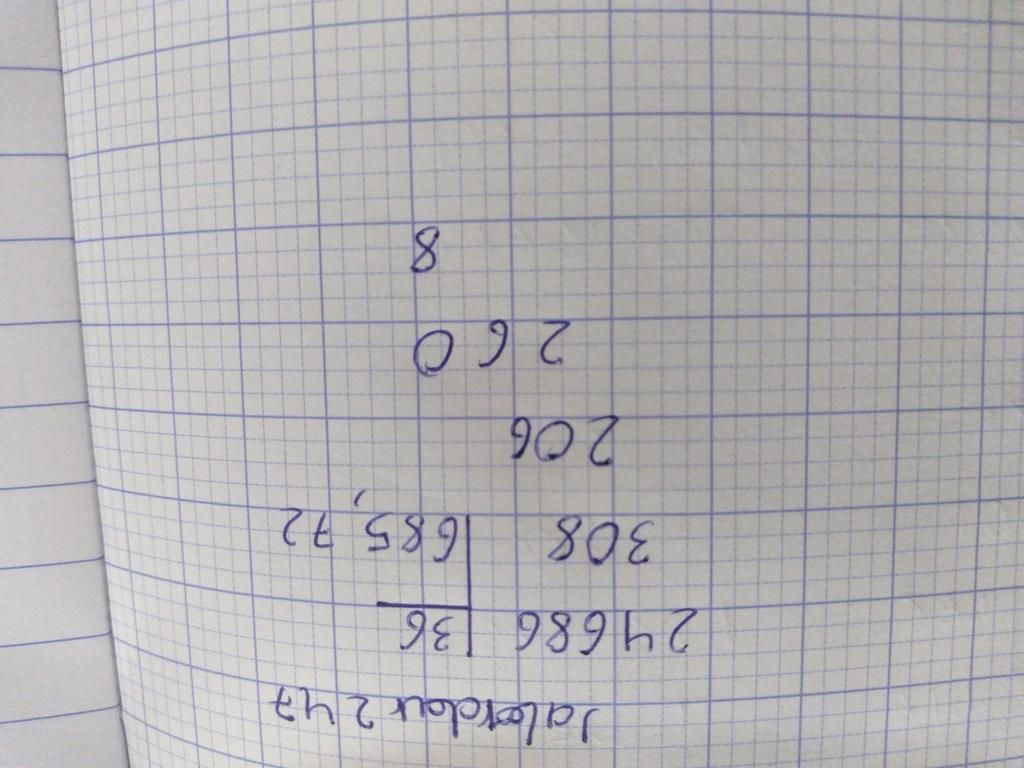 J'aborde 247
24686 |36
308 |685,72
206
260
8